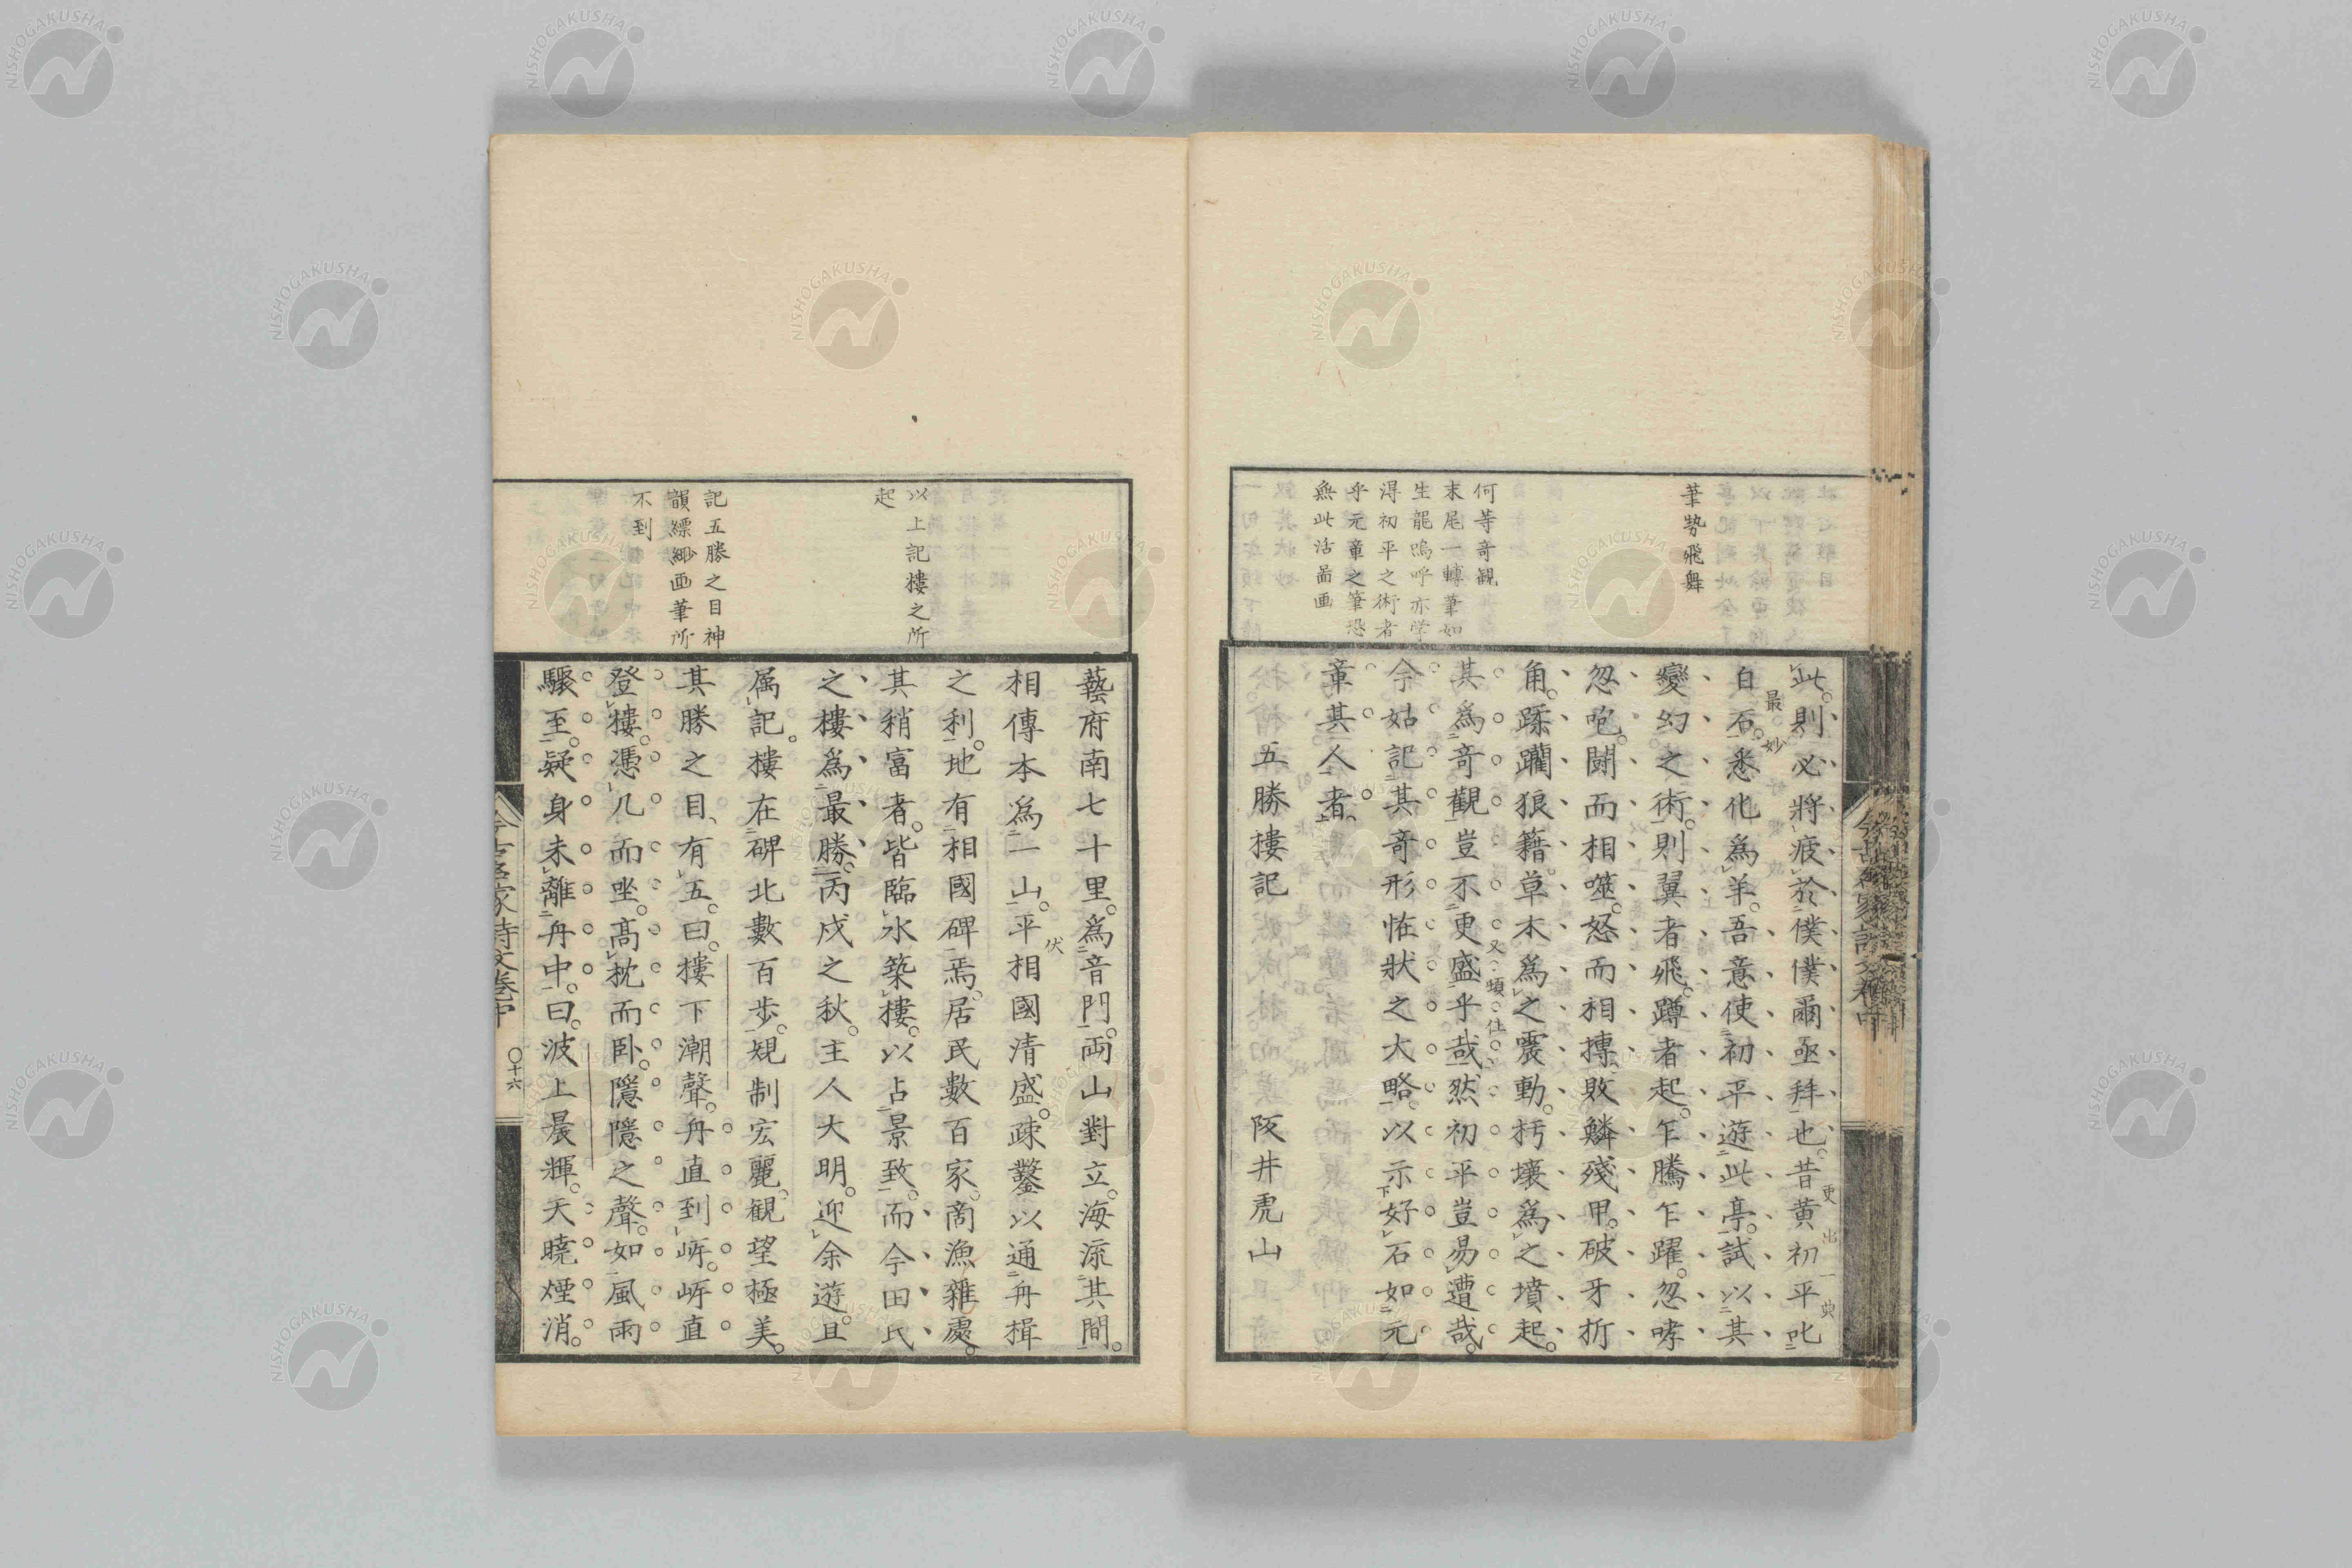 筆勢飛舞
何等奇観
末尾一轉筆如
生龍嗚呼亦学
得初平之術者
乎元章之筆恐
無此活畐画
此。則必將疲於僕僕爾亟拜也。昔黄初平叱
更出一典
白石。悉化爲羊。吾意使初平遊此亭。試以其
最妙
變幻之術。則翼者飛。蹲者起。乍騰乍躍。忽哮
忽咆。鬪而相噬。怒而相搏。敗鱗殘甲。破牙折
角。蹂躪狼籍。草木爲之震動。杇壞爲之墳起。
其爲奇觀。豈不更盛乎哉。然初平豈易遭哉。
又頓住
今姑記其奇形恠狀之大略。以示好石如元
章其人者。
五勝樓記 阪井虎山
以上記樓之所
起
記五勝之目神
韻縹緲画筆所
不到
藝府南七十里。爲音門。両山對立。海流其間。
相傳本爲一山。平相國清盛。疎鑿以通舟楫
伏
之利。地有相國碑焉。居民數百家。商漁雜處。
其稍富者。皆臨水築樓。以占景致。而今田氏
之樓爲最勝。丙戌之秋。主人大明。迎余遊。且
属記。樓在碑北數百歩。規制宏麗。観望極美。
其勝之目、有五。曰。樓下潮聲。舟直到㟁。㟁直
登樓。憑几而坐。髙枕而卧。隱隱之聲。如風雨
驟至。疑身未離舟中。曰。波上晨輝。天曉煙消。
今古名家詩文巻中
〇十六
NISHOGAKUSHA